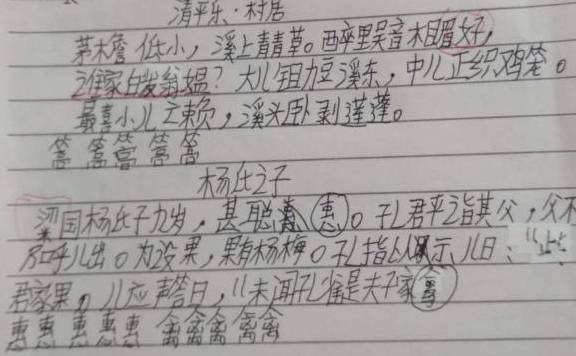 清平乐·村居
茅木詹低小，溪上青青草。西醉里吴音相眉女好，
谁家白发翁媪？大儿锄豆溪东，中儿正织鸡笼。
最喜小儿亡赖，溪头卧剥莲蓬。
杨氏之子
梁国杨氏子九岁，甚聪惠。孔君平诣其父，父不
乃呼儿出。为设果，果有杨梅。孔指以示儿曰：“此
君家果。儿应声答曰，“未闻孔雀是夫子家禽
惠惠惠惠惠 禽禽禽禽禽